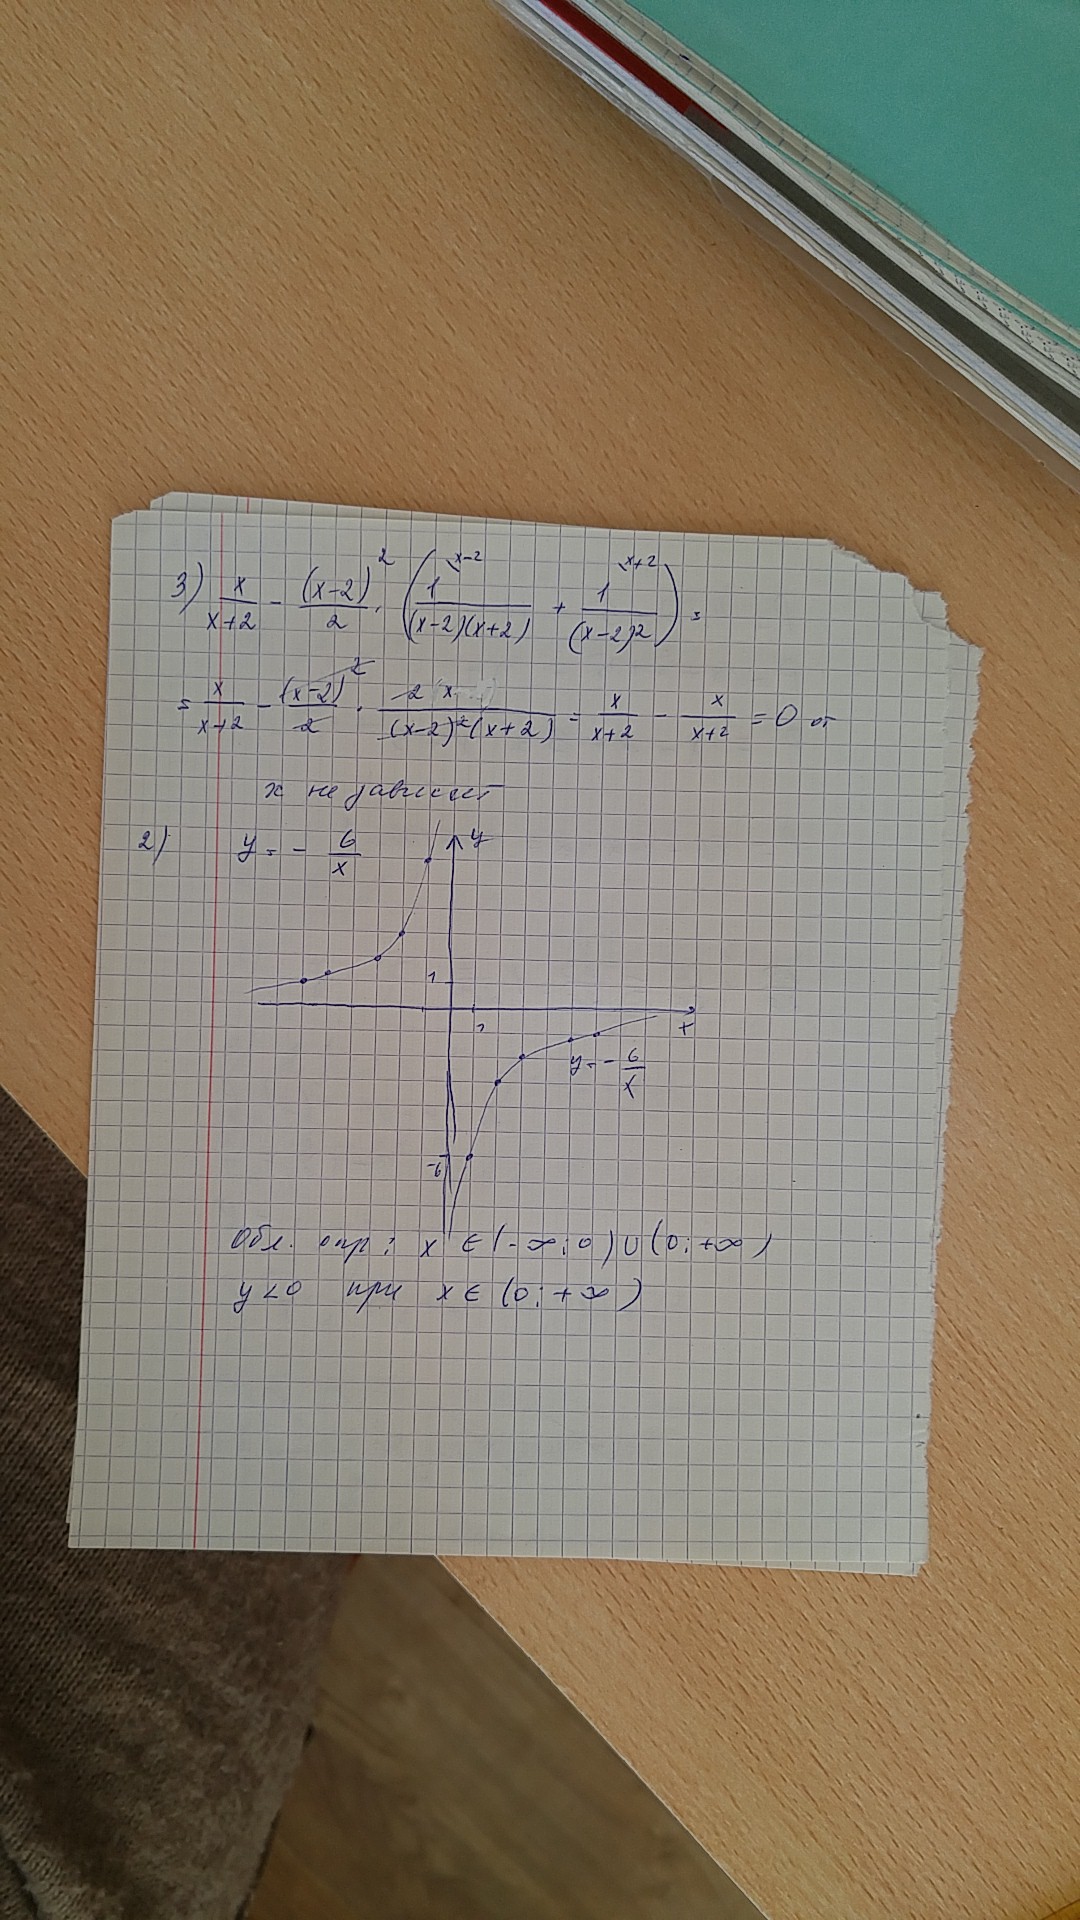 3) x/(x+2) - (x-2)²/2 · (1^(x-2)/((x-2)(x+2)) + 1^(x+2)/(x-2)²) =
= x/(x+2) - (x-2)²/2 · 2x/((x-2)²(x+2)) = x/(x+2) - x/(x+2) = 0 от
x не зависит
2) y = - 6/x
y
1
x
y = - 6/x
-6
Обл. опр: x ∈ (-∞; 0) ∪ (0; +∞)
y < 0 при x ∈ (0; +∞)